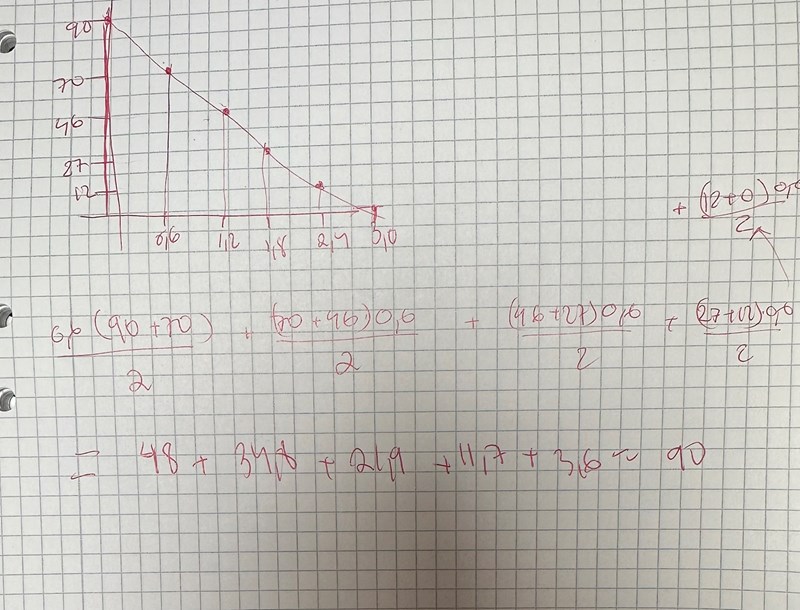 90
70
46
27
12
0,6 1,2 1,8 2,4 3,0
+ 0,6(0+12)
2
0,6 (90+70) + (46+70)0,6 + (27+46)0,6 + 0,6(12+27)
2 2 2 2
= 48 + 34,8 + 21,9 + 11,7 + 3,6 ~ 90